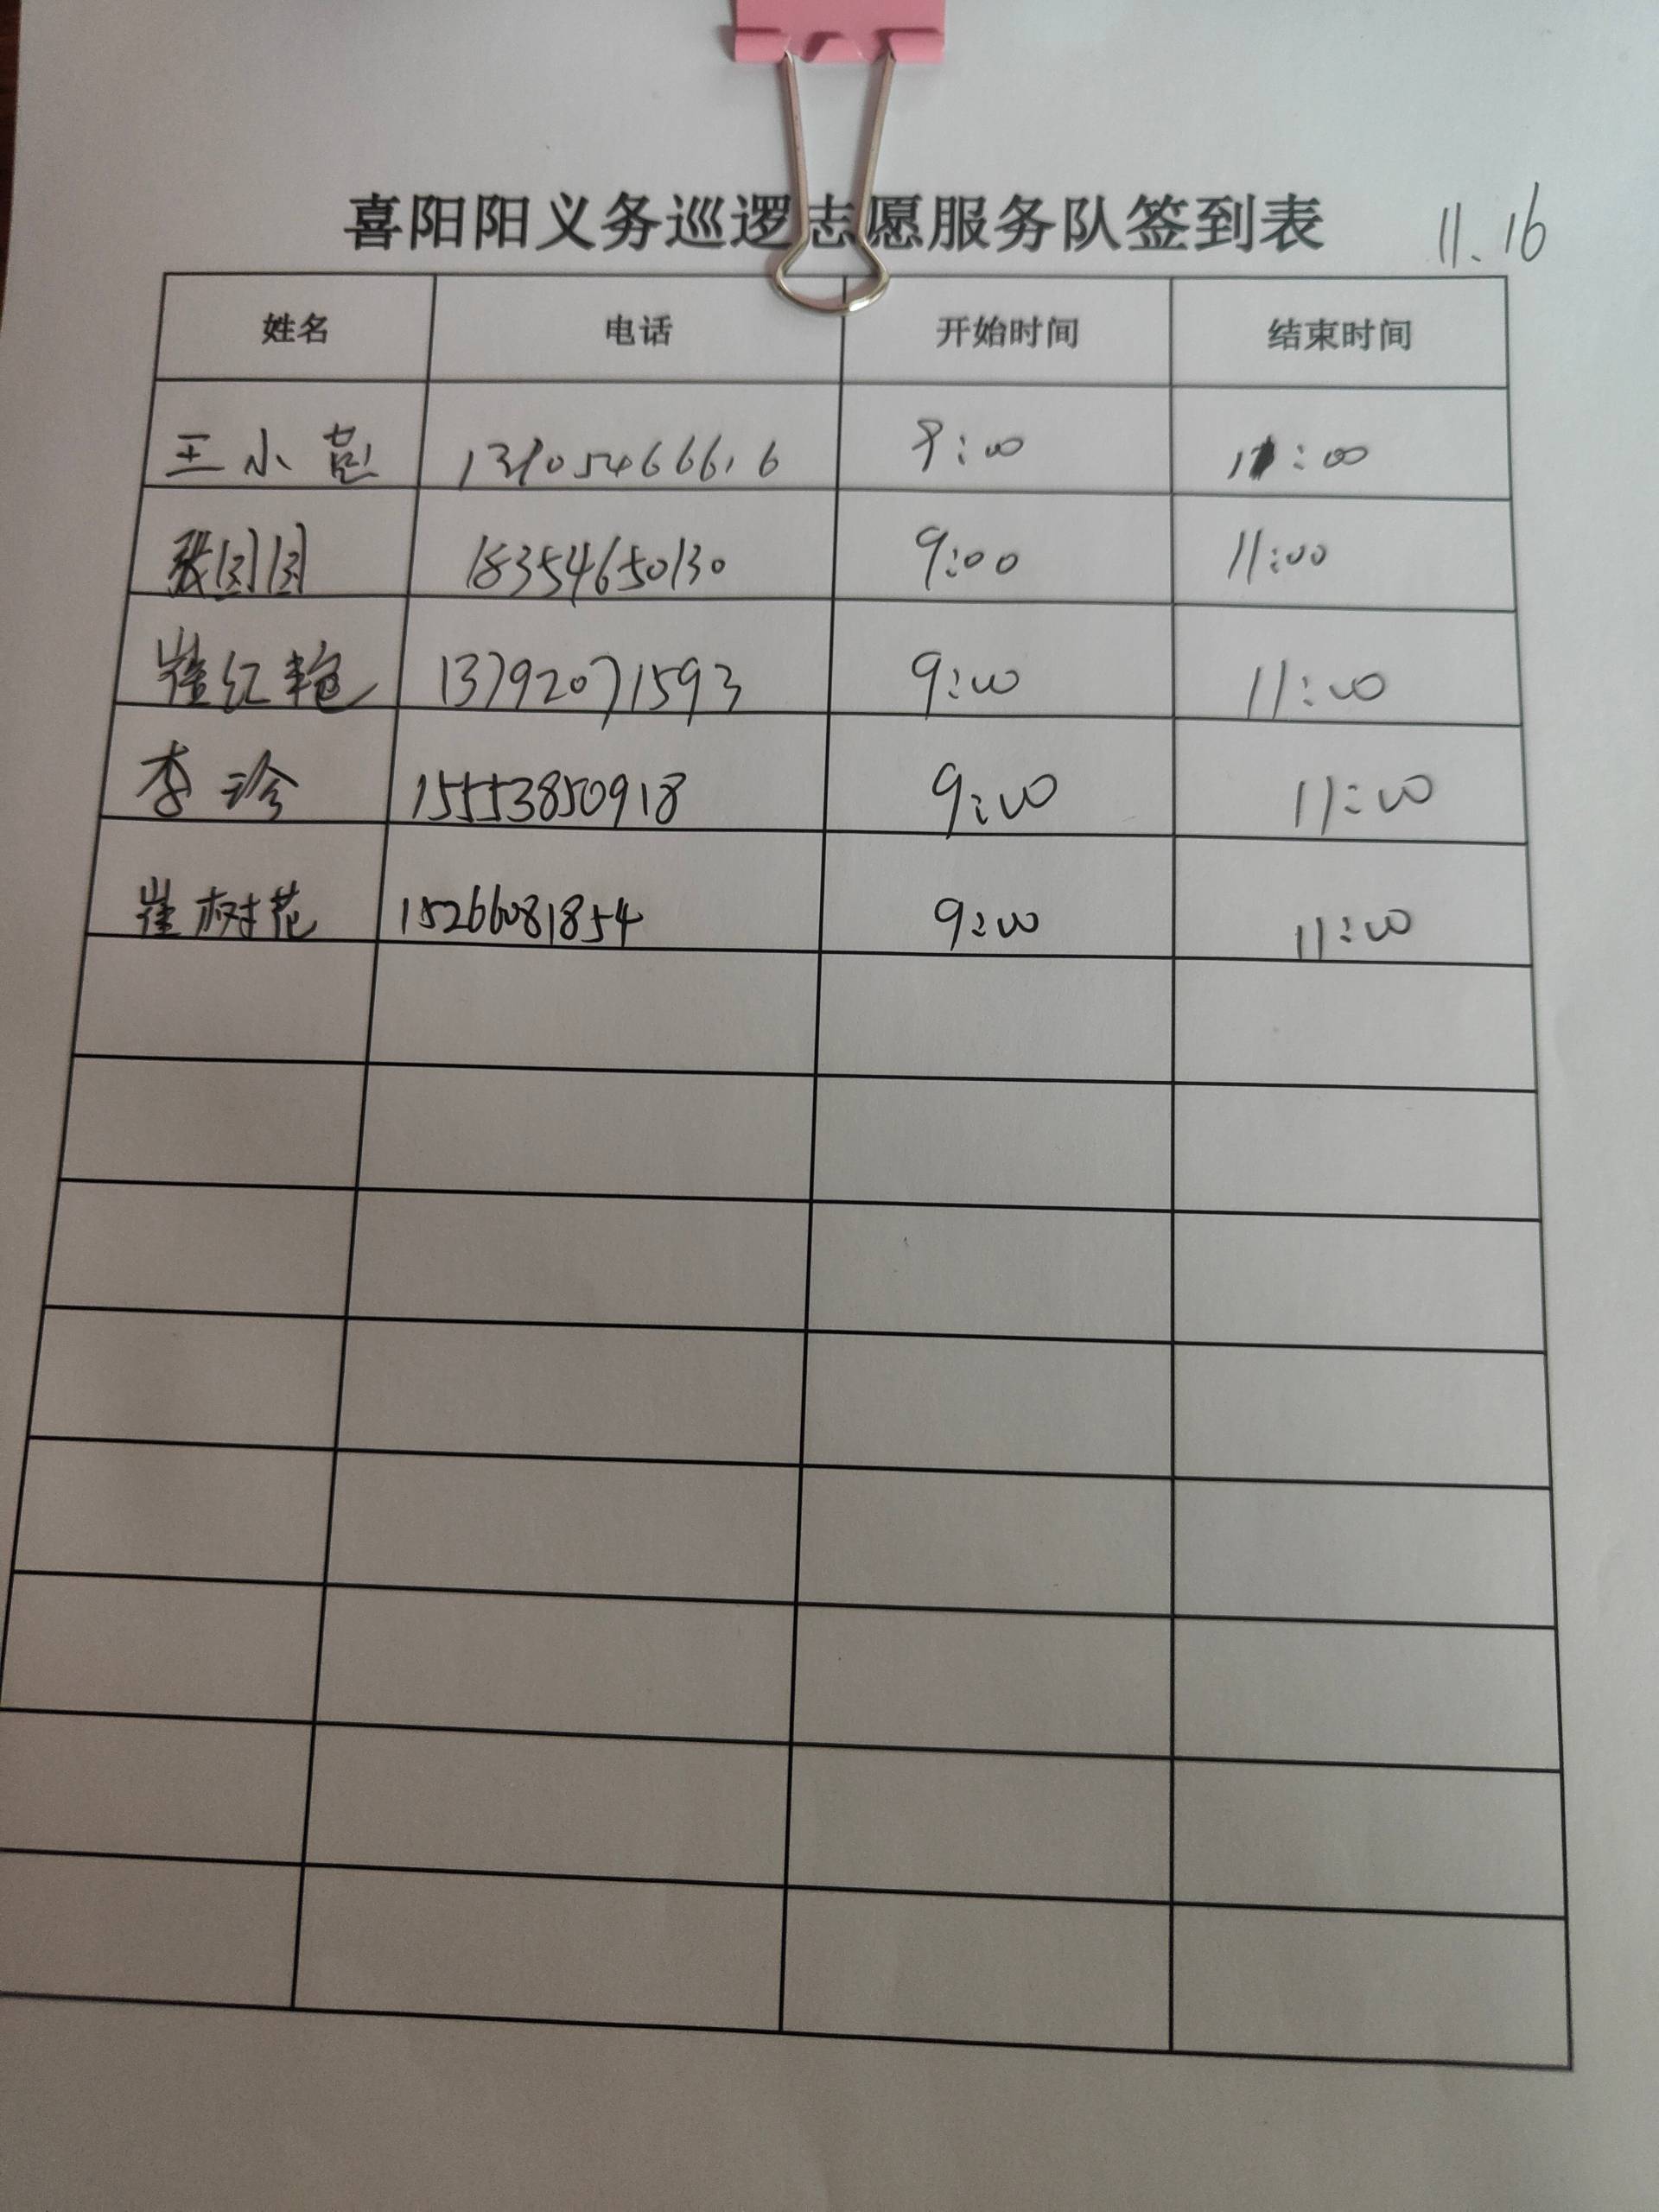 喜阳阳义务巡逻志愿服务队签到表 11.16
姓名 电话 开始时间 结束时间
王小 9:00 11:00
张团团 18354650130 9:00 11:00
崔红艳 13792071593 9:00 11:00
李珍 15553850918 9:00 11:00
崔树花 15266081854 9:00 11:00